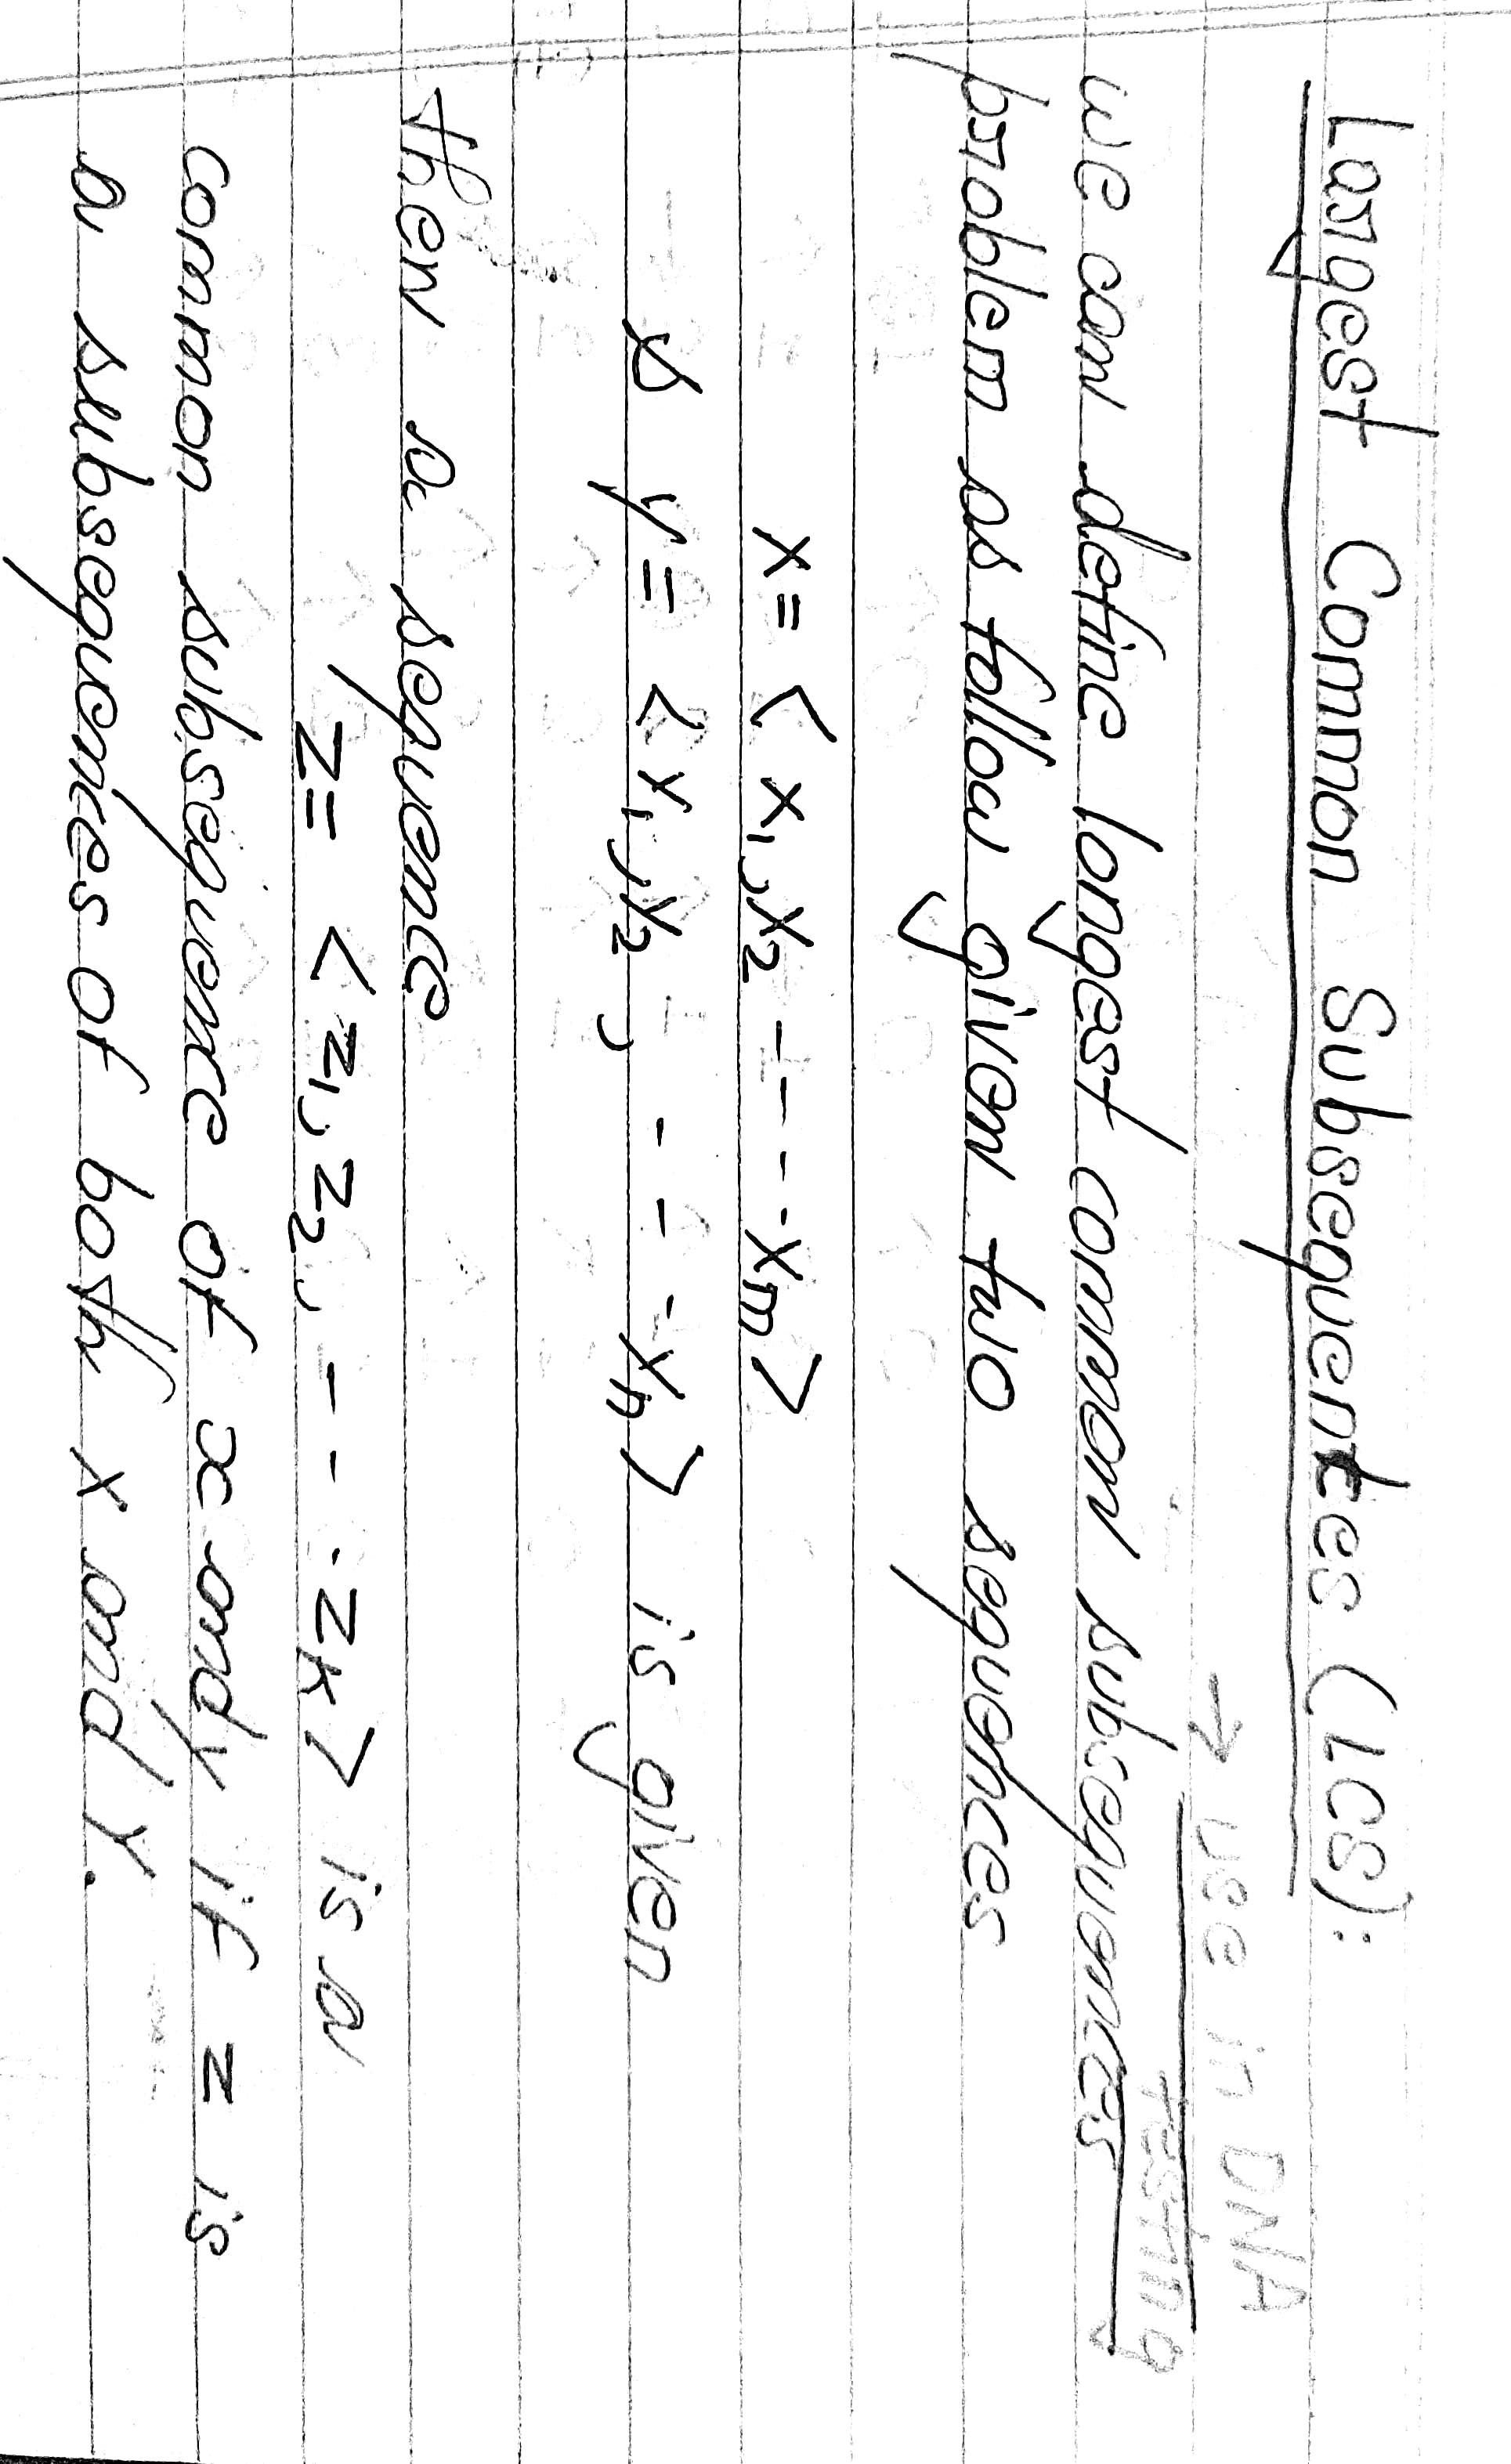 Largest Common Subsequentes (LCS):
→ use in DNA
testing
we can define longest common subsequences
problem as follow given two sequences
x = < x1, x2 - - - - xm >
& y = < x1, y2, - - - yn > is given
then a sequence
z = < z1, z2, - - - zk > is a
common subsequence of x and y if z is
a subsequences of both x and y.